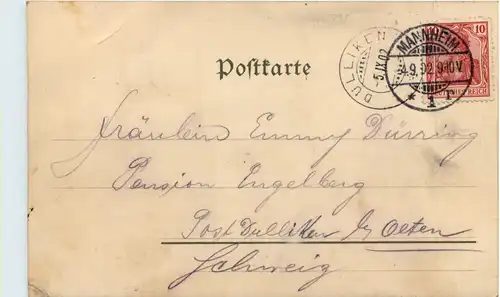 DULLIKEN
-5.IX.02
MANNHEIM
4.9.02 9-10V
* 1 r
10
REICH
Postkarte
Fräulein Emmy Düring
Pension Engelberg
Post Dulliken by Olten
Schweiz